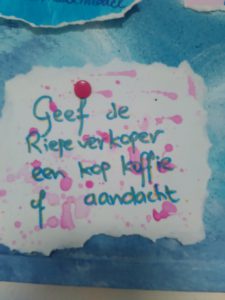 Geef de
Rieje verkoper
een kop koffie
of aandacht